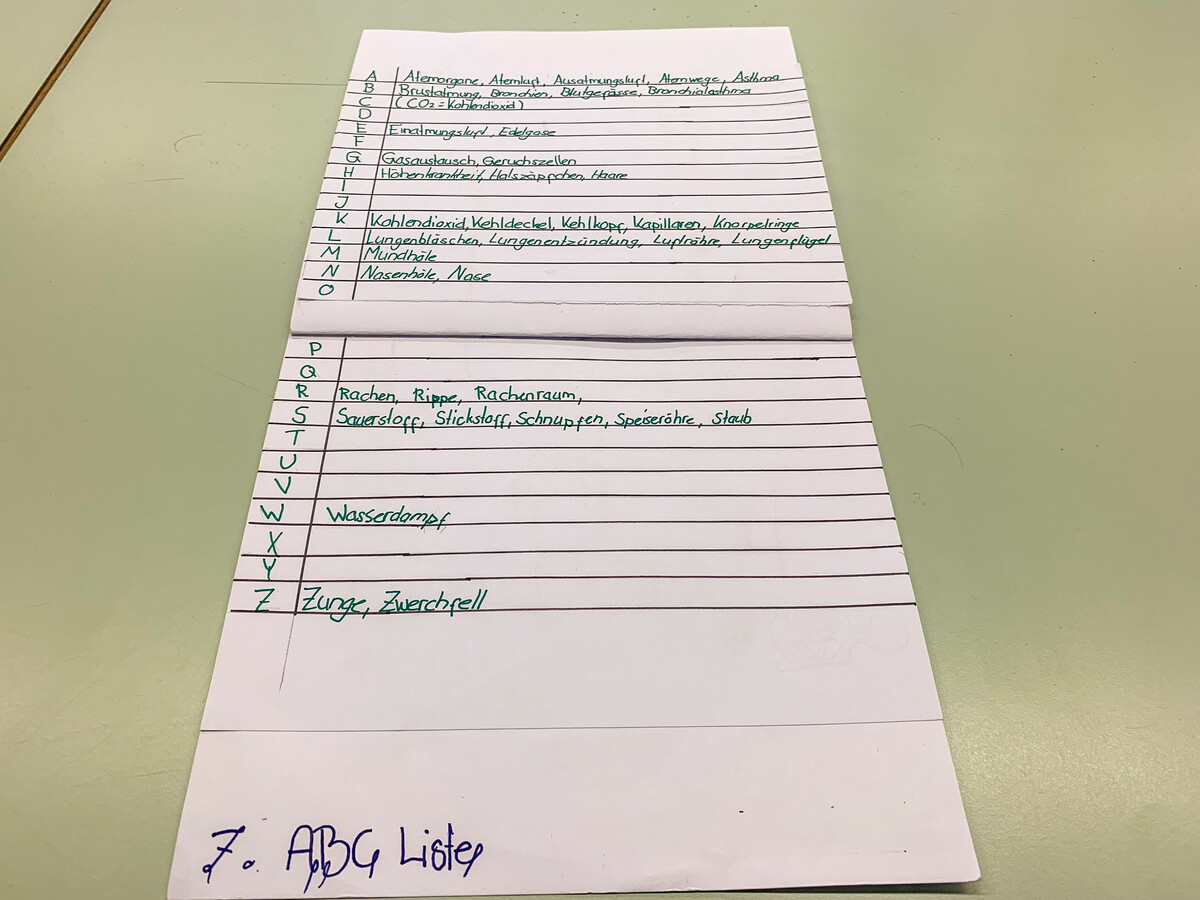 A Atemorgane, Atemluft, Ausatmungsluft, Atemwege, Asthma
B Brustatmung, Bronchien, Blutgefässe, Bronchialasthma
C (CO₂ = Kohlendioxid)
D
E Einatmungsluft, Edelgase
F
G Gasaustausch, Geruchszellen
H Höhenkrankheit, Halszäpfchen, Haare
I
J
K Kohlendioxid, Kehldeckel, Kehlkopf, Kapillaren, Knorpelringe
L Lungenbläschen, Lungenentzündung, Luftröhre, Lungenflügel
M Mundhöle
N Nasenhöle, Nase
O
P
Q
R Rachen, Rippe, Rachenraum,
S Sauerstoff, Stickstoff, Schnupfen, Speiseröhre, Staub
T
U
V
W Wasserdampf
X
Y
Z Zunge, Zwerchfell
7. ABC Liste